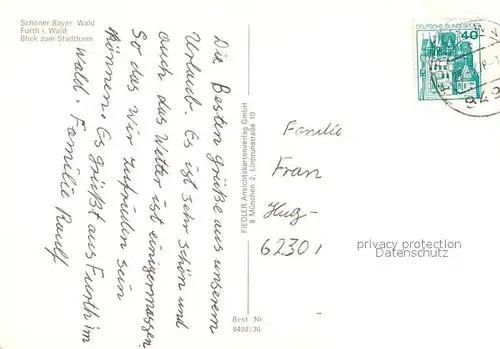 Schöner Bayer. Wald
Furth i. Wald
Blick zum Stadtturm
Die Besten Grüße aus unserem
Urlaub. Es ist sehr schön und
auch das Witter ist einigermassen.
So das wir Zufriden sein
können. Es grüßt aus Furth im
Wald. Familie Raulf
FIEDLER Ansichtskartenverlag GmbH
8 München 2, Linprunstraße 10
Best. Nr.
8492/36
DEUTSCHE BUNDESPOST
40
849
Familie
Fran
Hug-
6230
privacy protection
Datenschutz